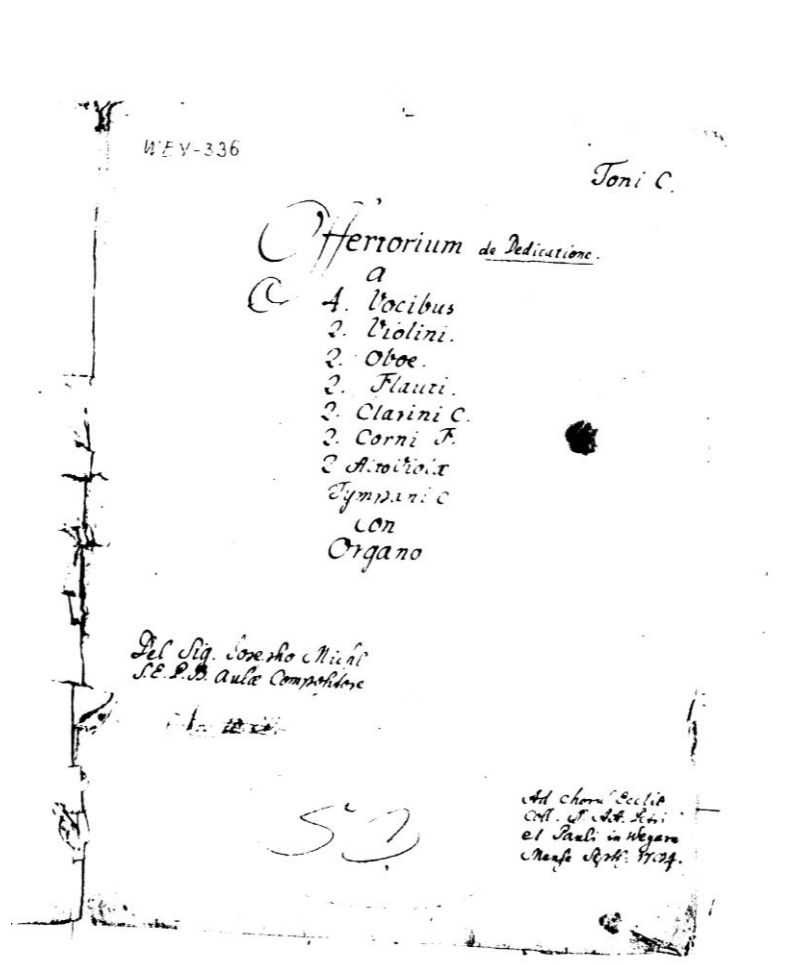 WEY-336
Toni C.
Offertorium de Dedicatione.
a
4. Vocibus
2. Violini.
2. Oboe.
2. Flauti.
2. Clarini C.
2. Corni F.
2 Alto Viola
Tympani C
con
Organo
Del Sig. Josepho Michl
S.E.P.B. Aulæ Compositore
52
Ad Chorū Eccliæ
Coll. Petri
et Pauli in Weyarn
Mense Septb: